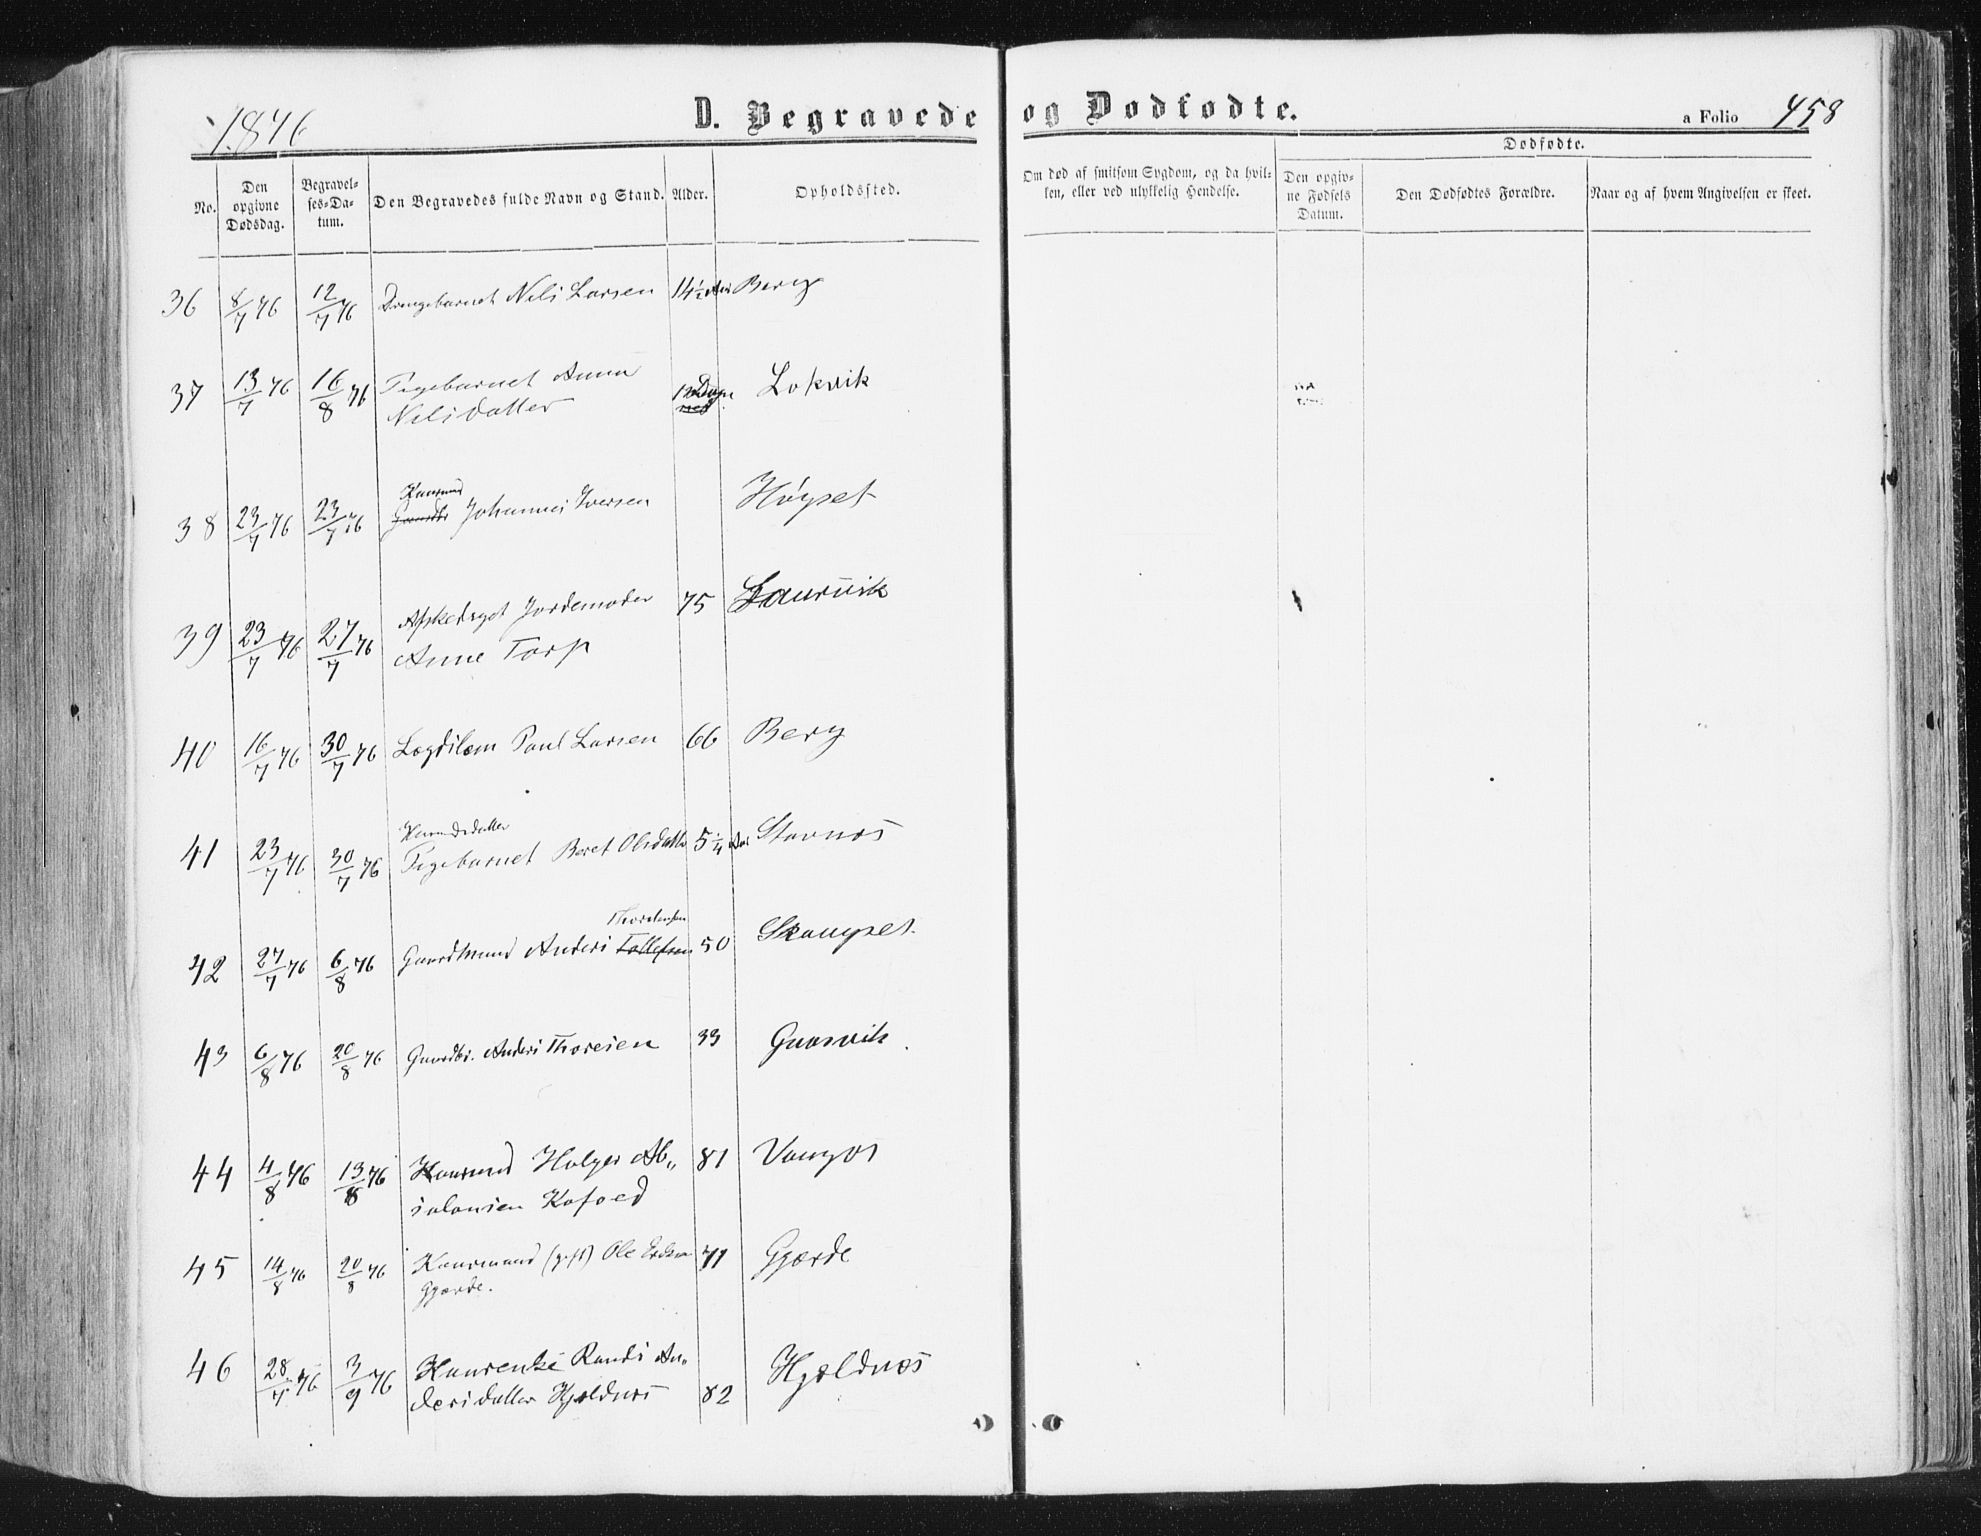 1876
D. Begravede og Dødfødte.
a Folio 458
No.
Den opgivne Dødsdag.
Begravelses-Datum.
Den Begravedes fulde Navn og Stand.
Alder.
Opholdssted.
Om død af smitsom Sygdom, og da hvilken, eller ved ulykkelig Hendelse.
Dødfødte.
Den opgivne Fødsels Datum.
Den Dødfødtes Forældre.
Naar og af hvem Angivelsen er skeet.
36 8/7 76 12/7 76 Drengebarnet Nils Larsen 14½ Berg
37 13/7 76 16/8 76 Pigebarnet Anna Lokvik
Nilsdatter
Kaarmand
38 23/7 76 23/7 76 Gaardbr Johannes Iversen Høyset
39 23/7 76 27/7 76 Afskediget Jordemoder 75 Laurvik
Anne Torp
40 16/7 76 30/7 76 Lægdslem Paul Larsen 66 Berg
41 23/7 76 30/7 76 Pigebarnet Beret Olsdatter 5¼ Aar Stavnæs
Thorstensen
42 27/7 76 6/8 76 Gaardmand Anders Tollefsen 50 Skaugset
43 6/8 76 20/8 76 Gaardbr. Anders Thoresen 33 Gaasvik
44 4/8 76 13/8 76 Kaarmand Holger Ab„ 81 Vaagos
salonsen Kofoed
45 14/8 76 20/8 76 Kaarmand (gift) Ole Erdsen 71 Gjærde
Gjærde.
46 28/7 76 3/9 76 Kaarenke Randi An„ Hjeldnæs
dersdatter Hjeldnæs 82